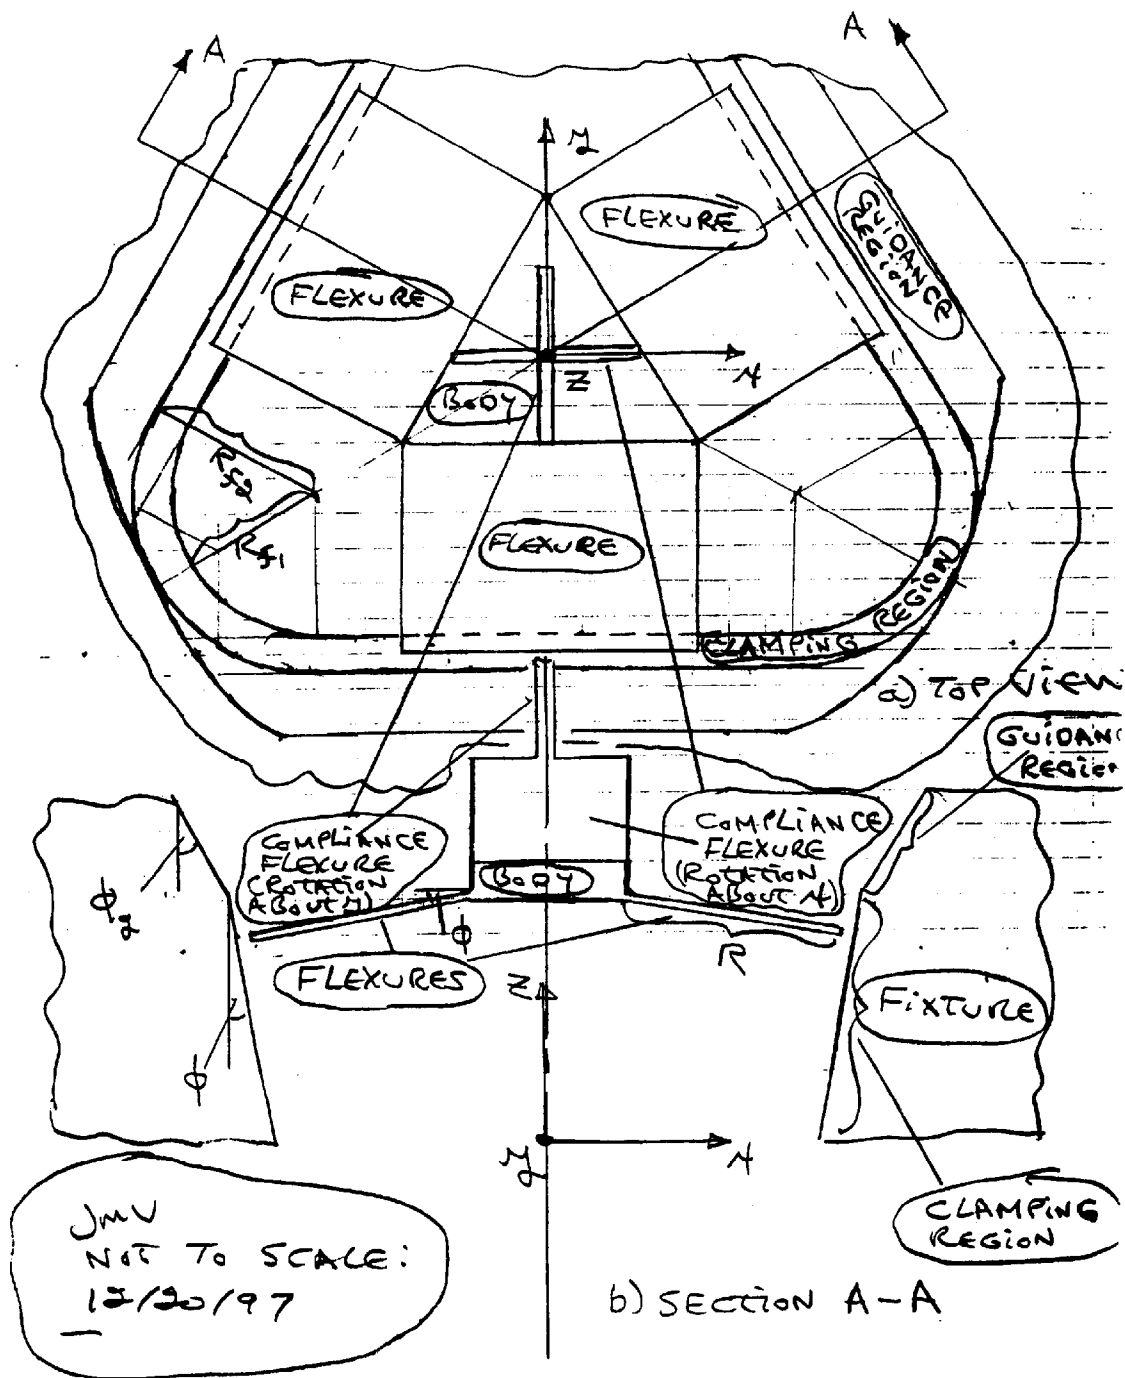 A
A
y
FLEXURE
GUIDANCE
REGION
FLEXURE
Z
x
BODY
Rf2
Rf1
FLEXURE
REGION
CLAMPING
a) TOP VIEW
GUIDANC
REGION
COMPLIANCE
FLEXURE
(ROTATION
ABOUT y)
COMPLIANCE
FLEXURE
(ROTATION
ABOUT x)
BODY
ϕg
ϕ
R
FLEXURES
Z
FIXTURE
ϕ
y
x
CLAMPING
REGION
JMV
NOT TO SCALE:
12/20/97
b) SECTION A-A